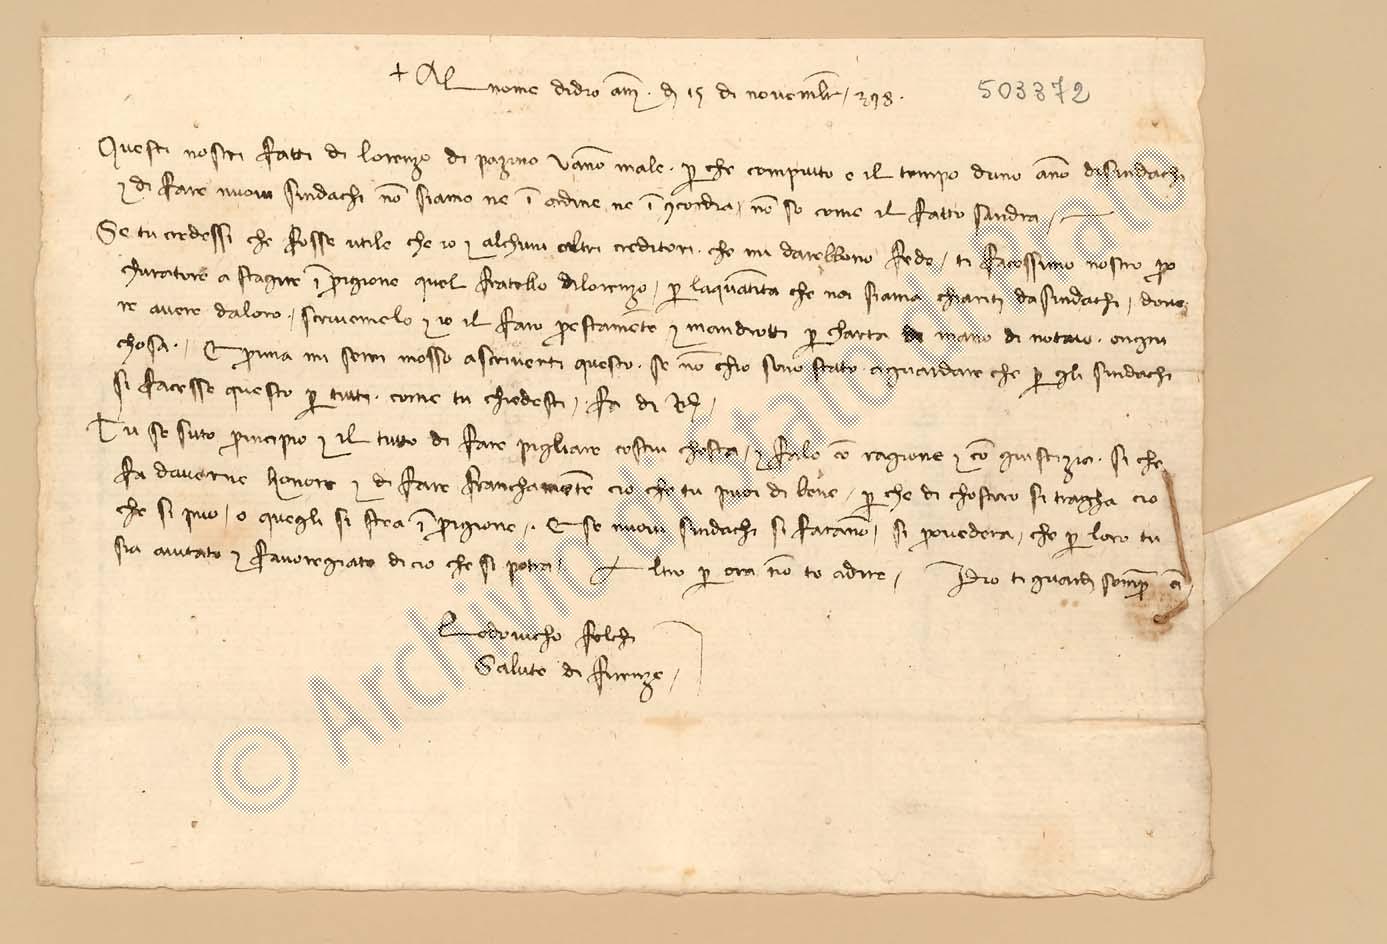 + Al nome didio am. dì 15 di novembre, 398.
503372
Questi nostri fatti di lorenzo di pazino vano male. per che compiuto e il tempo duno ano disindachi
e di fare nuovi sindachi nō siamo ne ī ordine ne ī chōcordia, nō so come il fatto sandra /
Se tu credessi che fosse utile che io e alchuni altri creditori. che mi darebbono fede, ti facessimo nostro pro
churatore a stagire ī prigione quel fratello dilorenzo, per laquātita che noi siamo chiariti dasindachi, dove
re avere daloro, scrivemelo e io il faro prestamēte e manderotti per charta di mano di notaio. ongni
chosa. E prima mi serei mosso ascriverti questo. se nō chio sono stato aguardare che per gli sindachi
si facesse questo per tutti. come tu chiedesti, fa di
Tu se suto principio e il tutto di fare pigliare costui chosta, e falo cō ragione e cō giustizia. si che
fa daverne honore e di fare franchamente cio che tu puoi di bene, per che di chostui si tragha cio
che si puo, o quegli si stea ī prigione. E se nuovi sindachi si farano, si provedera, che per loro tu
sia aiutato e favoregiato di cio che si potra, Altro per ora nō to adire, Idio ti guardi sempre
Lodovicho
Salute di firenze,
© Archivio di Stato di Prato